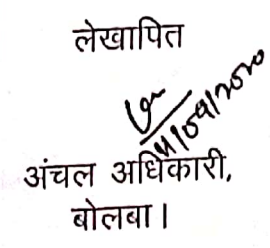 लेखापित
अंचल अधिकारी,
बोलबा।